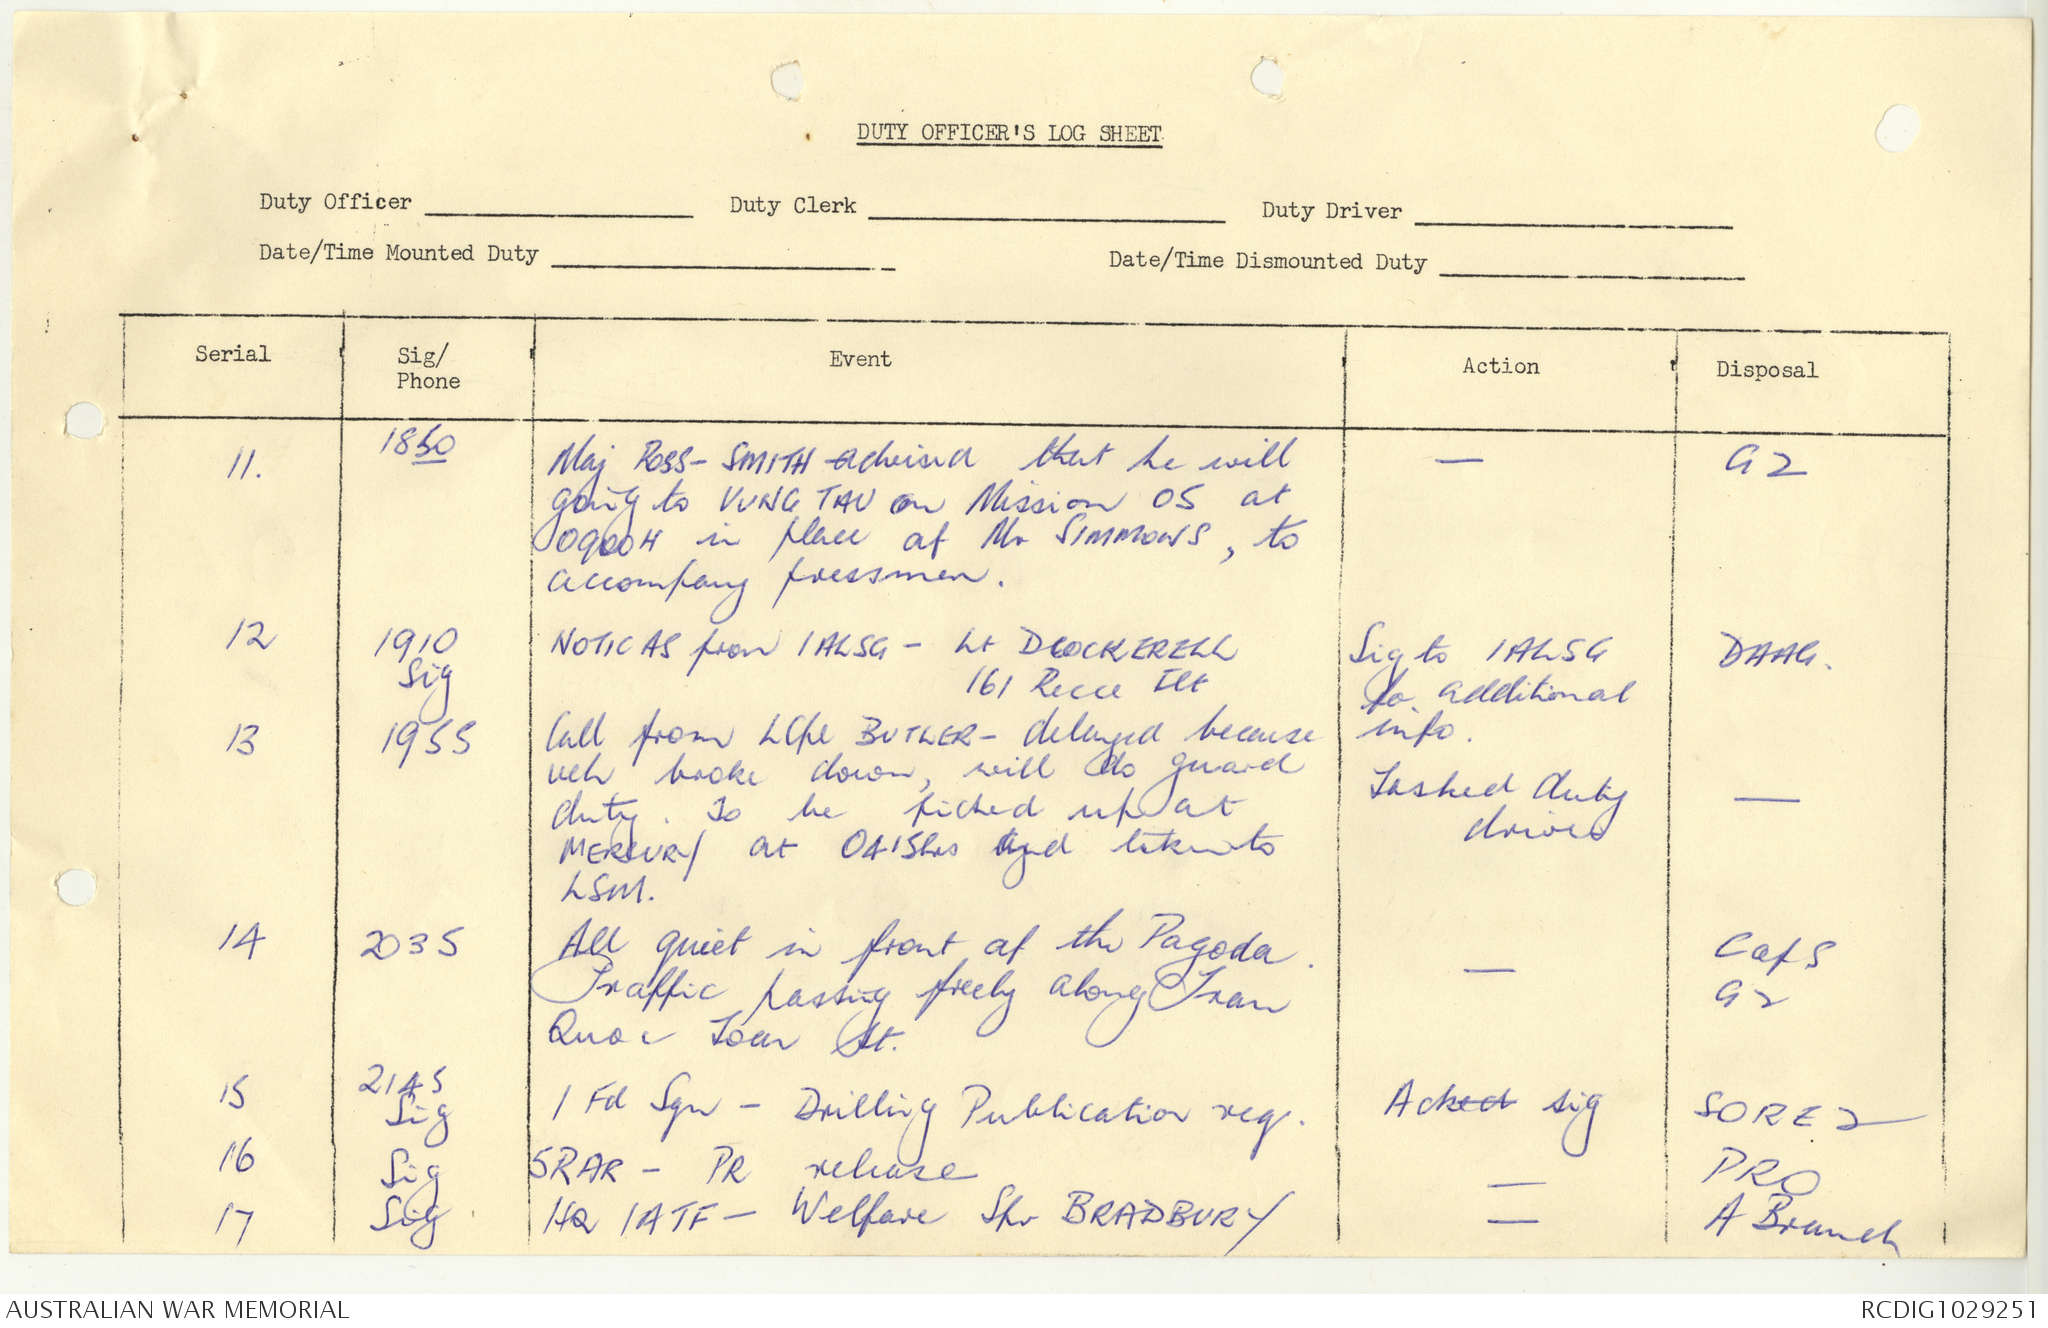 DUTY OFFICER'S LOG SHEET
Duty Officer Duty Clerk Duty Driver
Date/Time Mounted Duty Date/Time Dismounted Duty
Serial Sig/ Phone Event Action Disposal
11. 1850 Maj ROSS-SMITH advised that he will — G2
going to VUNG TAU on Mission 05 at
0900H in place of Mr SIMMONS, to
accompany pressmen.
12 1910 NOTICAS from 1ALSG - Lt D COCKERELL Sig to 1ALSG DAAG.
Sig 161 Recce Flt fo. additional
info.
13 1955 Call from LCpl BUTLER - delayed because
veh broke down, will do guard Tasked duty —
duty. To be picked up at driver
MERCURY at 0415hrs and taken to
LSM.
14 2035 All quiet in front of the Pagoda. — C of S
Traffic passing freely along Tran G2
Quoc Toan St.
15 2145 Sig 1 Fd Sqn - Drilling Publication req. Acked sig SORE2
16 Sig 5RAR - PR release — PRO
17 Sig HQ 1ATF - Welfare Spr BRADBURY — A Branch
AUSTRALIAN WAR MEMORIAL RCDIG1029251